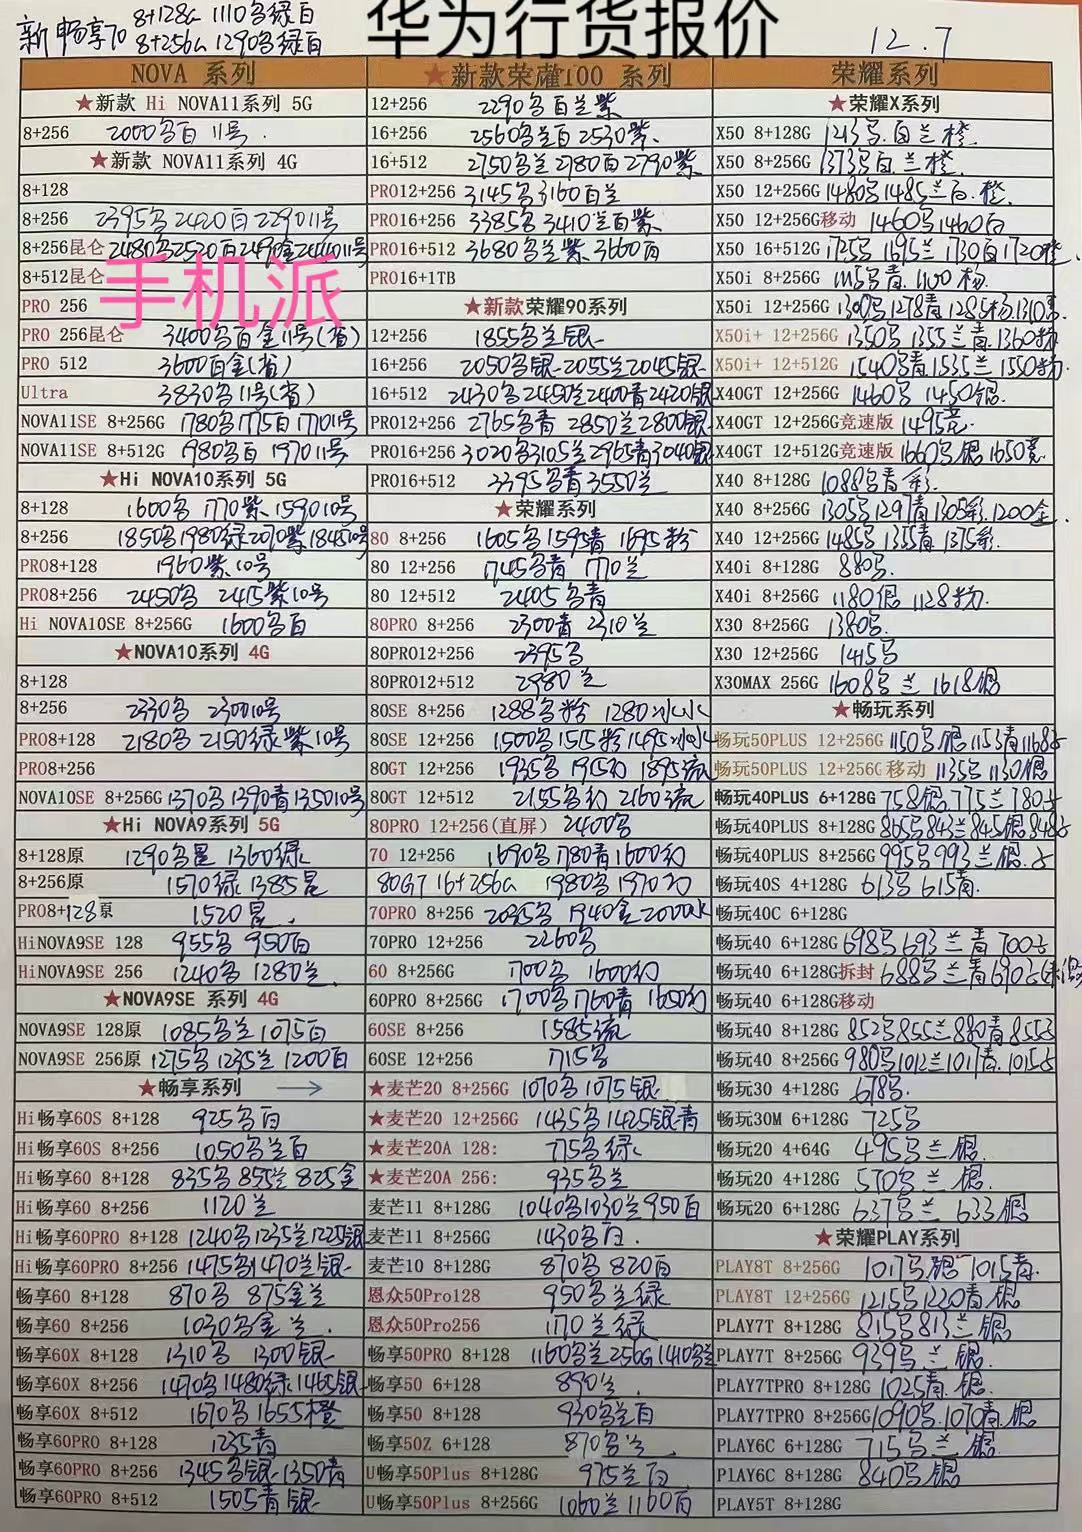 华为行货报价
新畅享70 8+128G 1110名绿白
8+256G 1290名绿白
12.7
手机派
NOVA 系列
★新款 Hi NOVA11系列 5G
8+256 2000名白 11号.
★新款 NOVA11系列 4G
8+128
8+256 2395名 2420白 2290 11号
8+256昆仑 2480名2520白
8+512昆仑
PRO 256
PRO 256昆仑 3400名白金11号(省)
PRO 512 3600白金(省)
Ultra 3830名11号(省)
NOVA11SE 8+256G 1780名1775白1770 11号
NOVA11SE 8+512G 1980名白 1970 11号
★Hi NOVA10系列 5G
8+128 1600名 1770紫 1590 10号
8+256 1850名1980绿2070紫1845 10号
PRO8+128 1960紫.10号
PRO8+256 2450名 2415紫10号
Hi NOVA10SE 8+256G 1600名白
★NOVA10系列 4G
8+128
8+256 2330名 2300 10号
PRO8+128 2180名 2150绿紫10号
PRO8+256
NOVA10SE 8+256G 1370名1390青1350 10号
★Hi NOVA9系列 5G
8+128原 1290名星 1360绿
8+256原 1570绿 1385星
PRO8+128原 1520星.
HiNOVA9SE 128 955名 950白
HiNOVA9SE 256 1240名 1280兰.
★NOVA9SE 系列 4G
NOVA9SE 128原 1085名兰 1075白
NOVA9SE 256原 1275名 1235兰 1200白
★畅享系列
Hi畅享60S 8+128 925名白
Hi畅享60S 8+256 1050名兰白
Hi畅享60 8+128 835名 855兰 825金
Hi畅享60 8+256 1120兰
Hi畅享60PRO 8+128 1240名1235兰1225银
Hi畅享60PRO 8+256 1475名1470兰银
畅享60 8+128 870名 875金兰
畅享60 8+256 1030名金兰.
畅享60X 8+128 1310名 1300银
畅享60X 8+256 1470名1480绿1465银
畅享60X 8+512 1670名 1655橙
畅享60PRO 8+128 1235青
畅享60PRO 8+256 1345名银 1350青
畅享60PRO 8+512 1505青银
★新款荣耀100 系列
12+256 2290名白兰紫
16+256 2560名兰白 2530紫
16+512 2750名兰 2780白 2790紫
PRO12+256 3145名3160白兰
PRO16+256 3385名 3410兰白紫
PRO16+512 3680名兰紫 3660白
PRO16+1TB
★新款荣耀90系列
12+256 1855名兰银
16+256 2050名银 2055兰2045银
16+512 2430名2450兰2400青2420银
PRO12+256 2765名青 2850兰2800银
PRO16+256 3020名3105兰2965青3040银
PRO16+512 3395名青3550兰
★荣耀系列
80 8+256 1605名1595青 1695粉
80 12+256 1745名青 1770兰
80 12+512 2405名青
80PRO 8+256 2300青 2310兰
80PRO12+256 2395名
80PRO12+512 2980兰
80SE 8+256 1288名粉 1280冰
80SE 12+256 1500名1515粉1495冰
80GT 12+256 1935名 1915幻 1895流
80GT 12+512 2155名幻 2160流
80PRO 12+256(直屏) 2400名
70 12+256 1690名1780青1600幻
80GT 16+256G 1980名 1970幻
70PRO 8+256 2035名 1940金2000冰
70PRO 12+256 2260名
60 8+256G 1700名 1600幻
60PRO 8+256G 1700名1760青 1650幻
60SE 8+256 1585流
60SE 12+256 1715名
★麦芒20 8+256G 1070名1075银
★麦芒20 12+256G 1435名1425银青
★麦芒20A 128: 775名绿
★麦芒20A 256: 935名兰
麦芒11 8+128G 1040名1030兰950白
麦芒11 8+256G 1430名白.
麦芒10 8+128G 870名 820白
恩众50Pro128 950名兰绿
恩众50Pro256 1170兰绿
畅享50PRO 8+128 1160名兰256G1410名兰
畅享50 6+128 890兰.
畅享50 8+128 930名兰白
畅享50Z 6+128 870名兰
U畅享50Plus 8+128G 975兰白
U畅享50Plus 8+256G 1060兰1160白
荣耀系列
★荣耀X系列
X50 8+128G 1213名.白兰橙.
X50 8+256G 1373名白.兰橙.
X50 12+256G 1480名1485兰白.橙
X50 12+256G移动 1460名1460白
X50 16+512G 1725名 1695兰 1730白1720橙
X50i 8+256G 1115名青.1100粉
X50i 12+256G 1300名1278青1285粉1310
X50i+ 12+256G 1350名1355兰青.1360粉
X50i+ 12+512G 1540名青1535兰1550粉
X40GT 12+256G 1460名 1450银
X40GT 12+256G竞速版 1495竞
X40GT 12+512G竞速版 1660名银1650竞
X40 8+128G 1088名青彩.
X40 8+256G 1305名1297青1305彩.1200金
X40 12+256G 1485名1355青1375彩.
X40i 8+128G 880名.
X40i 8+256G 1180银 1128粉.
X30 8+256G 1380名.
X30 12+256G 1415名
X30MAX 256G 1608名兰 1618银
★畅玩系列
畅玩50PLUS 12+256G 1150名银1153青1168
畅玩50PLUS 12+256G移动 1135名1130银
畅玩40PLUS 6+128G 758银.775兰780
畅玩40PLUS 8+128G 865名843兰845银848
畅玩40PLUS 8+256G 995名993兰银.
畅玩40S 4+128G 613名 615青.
畅玩40C 6+128G
畅玩40 6+128G 698名693兰青700
畅玩40 6+128G拆封 688名兰青690
畅玩40 6+128G移动
畅玩40 8+128G 852名855兰880青855
畅玩40 8+256G 980名1012兰1017青.1015
畅玩30 4+128G 678名.
畅玩30M 6+128G 725名
畅玩20 4+64G 495名兰银.
畅玩20 4+128G 570名兰银.
畅玩20 6+128G 637名兰 633银
★荣耀PLAY系列
PLAY8T 8+256G 1017名银1015青.
PLAY8T 12+256G 1215名1220青银
PLAY7T 8+128G 815名813兰银.
PLAY7T 8+256G 939名兰银.
PLAY7TPRO 8+128G 1025青.银.
PLAY7TPRO 8+256G 1090名.1070青.银
PLAY6C 6+128G 715名兰银
PLAY6C 8+128G 840名银
PLAY5T 8+128G